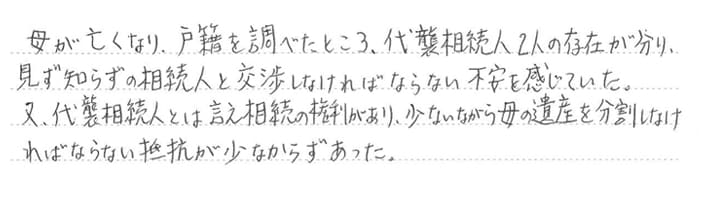 母が亡くなり、戸籍を調べたところ、代襲相続人2人の存在が分り、
見ず知らずの相続人と交渉しなければならない不安を感じていた。
又、代襲相続人とは言え相続の権利があり、少ないながら母の遺産を分割しなけ
ればならない抵抗が少なからずあった。